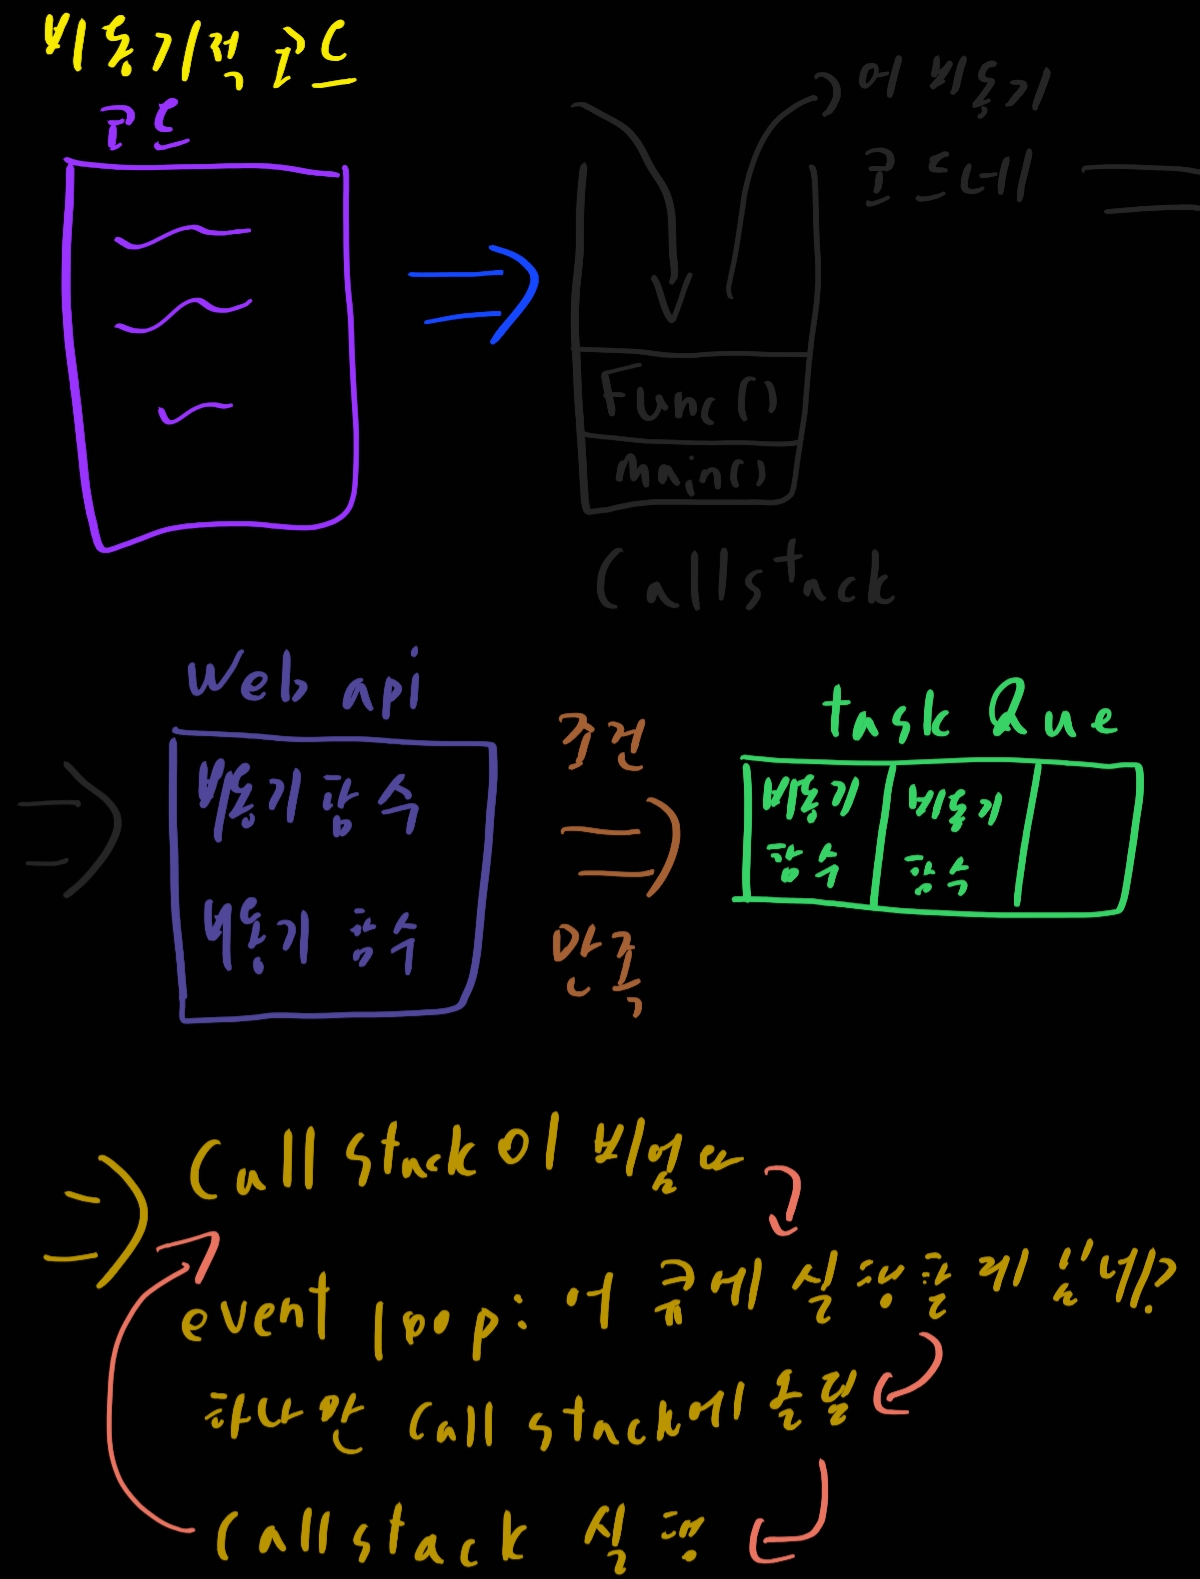 비동기적 코드
코드
어 비동기
코드네
Func()
main()
Callstack
Web api
비동기 함수
비동기 함수
조건
만족
task Que
비동기
함수
비동기
함수
Call stack이 비었다
event loop: 어 큐에 실행할 게 있네?
하나만 Call stack에 올림
Callstack 실행